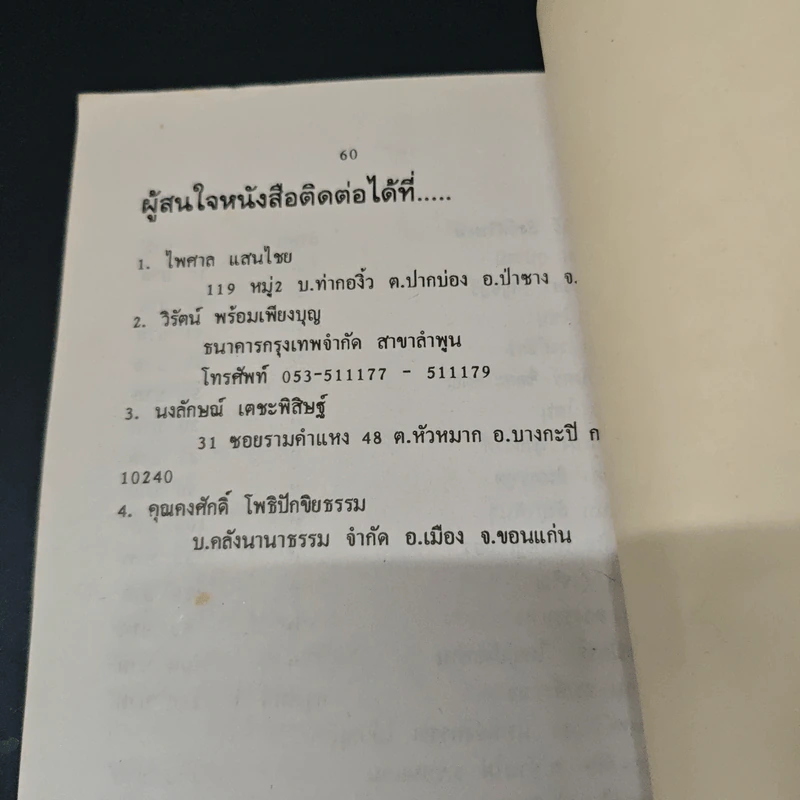 60
ผู้สนใจหนังสือติดต่อได้ที่.....
1. ไพศาล แสนไชย
119 หมู่2 บ.ท่ากองิ้ว ต.ปากบ่อง อ.ป่าซาง จ.
2. วิรัตน์ พร้อมเพียงบุญ
ธนาคารกรุงเทพจำกัด สาขาลำพูน
โทรศัพท์ 053-511177 - 511179
3. นงลักษณ์ เตชะพิสิษฐ์
31 ซอยรามคำแหง 48 ต.หัวหมาก อ.บางกะปิ ก
10240
4. คุณคงศักดิ์ โพธิปักขิยธรรม
บ.คลังนานาธรรม จำกัด อ.เมือง จ.ขอนแก่น